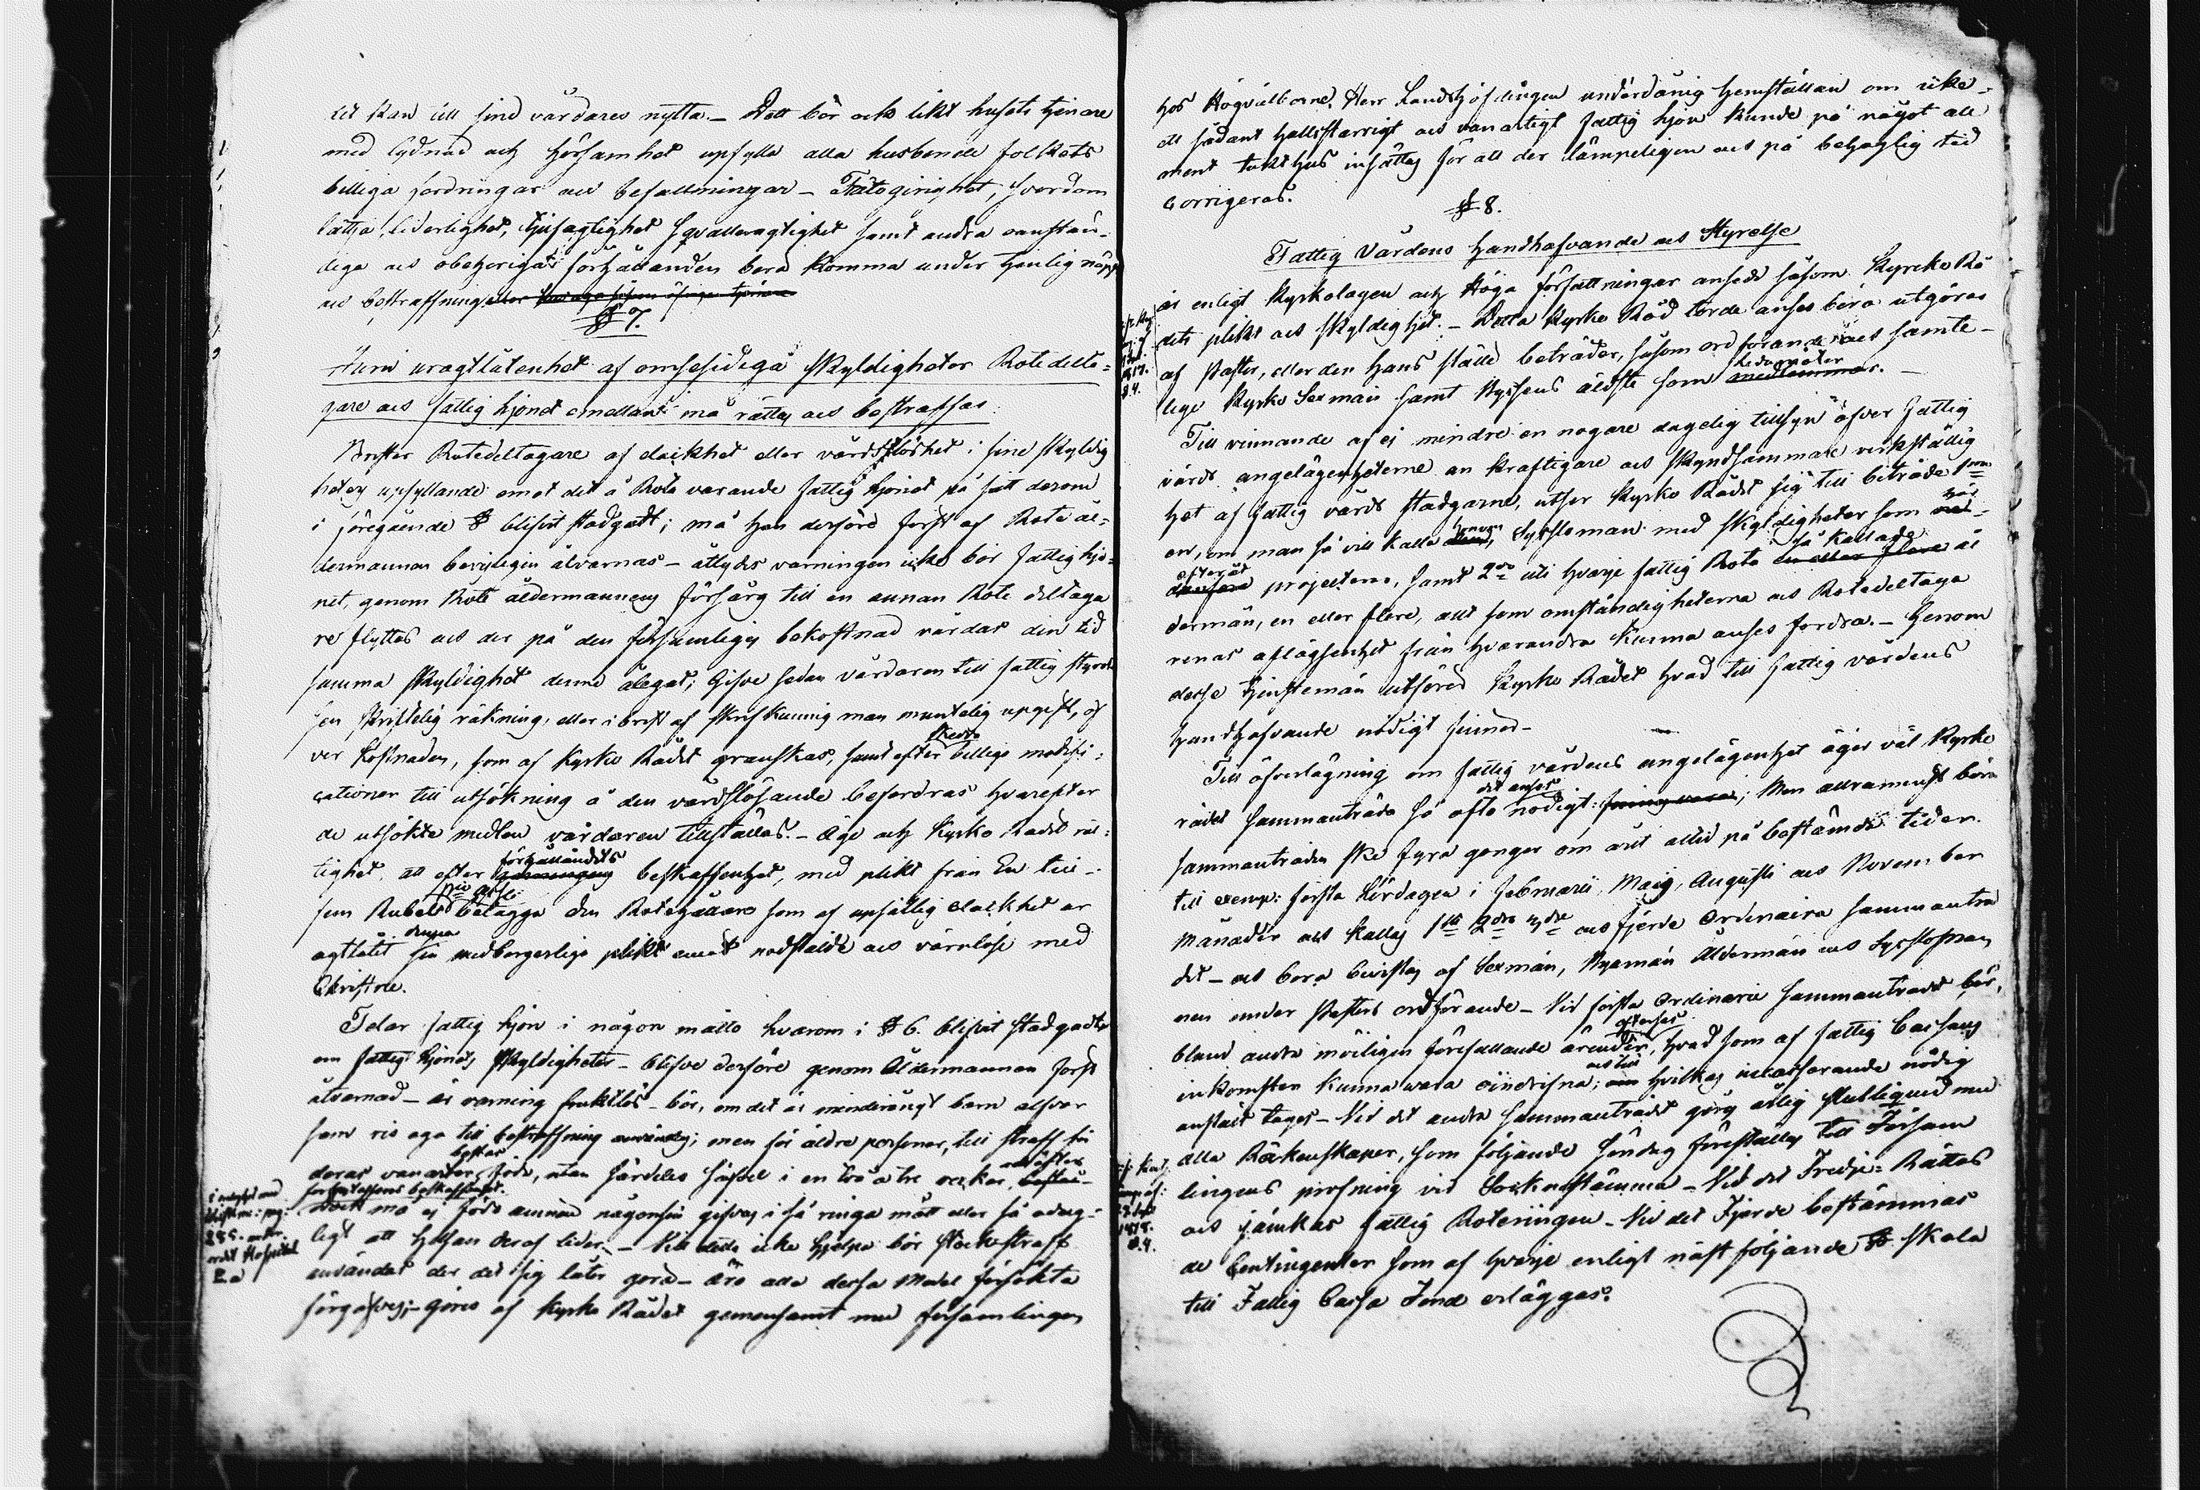 det kan till sine vårdares nytta. – Dett bör ock likt husets tjenare
med lydnad och hörsamhet upfylla alla husbonde folkets
billiga fordringar och befallningar – Fåtogirighet, svordom
lättja, liderlighet, tjufagtighet sqvalleragtighet samt andra oanstän-
dige och obehöriga förhållanden böra komma under henlig näpst
och bestraffning
§ 7.
Huru uragtlåtenhet af omsesidiga skyldigheter Rotedelta-
gare och fattig hjonet emellan må rättas och bestraffas
Brister Rotedeltagare af elackhet eller vårdslöshet i sine skyldig
heters upfyllande emot det å Rote varande fattig hjonet på sätt derom
i föregående § blifvit stadgadt; må han derföre först af Rote ål-
dermannen beviteligen åtvarnas – åtlydes varningen icke bör fattighjo-
net, genom Rote åldermannens försorg till en annan Rote deltaga
re flyttas och der på den försumliges bekostnad vårdas den tid
samma skyldighet denne ålegat; Gifve sedan vårdaren till fattig styrel
sen skriftelig räkning, eller i brist af skrifkunnig man muntelig upgift, öf
ver kostnaden, som af Kyrko Rådet granskas, samt efter skedde billige modifi-
cationer till utsökning å den vårdslösande befordras hvarefter
de utsökte medlen vårdaren tillställas. – Äge och Kyrko Rådet rät-
tighet, att efter förhållandets beskaffenhet, med plikt från En till
fem Rubel belägga den Rotehållare som af upsåtlig elackhet ur
agtlåtit denna sin medborgerliga plikt emot nödstälde och värnlöse med
Christne.
Felar fattig hjon i någon måtto hvarom i § 6. blifvit stadgadt
om fattig hjonets skyldigheter – blifve derföre genom Åldermannen först
åtvarnad – är varning fruktlös – bör, om det är minderårigt barn alfvar
sam ris aga till bestraffning användas; men för äldre personer, till straff för
deras vanarter, föda, utan särdeles sofvel i en två a tre veckor
Dock må ej föda
ligt att helsan deraf lider. – Vill dette icke hjelpa bör stockstraff
användas der det sig låter göra – äro alla dessa medel försökta
förgäfves; – göres af Kyrko Rådet gemensamt med församlingen
hos Högvälborne Herr Landshöfdingen underdånig hemställan om icke
ett sådant hallstarrigt och vanartigt fattig hjon kunde på något all
ment tukthus insättas för att der lämpeligen och på behaglig tid
corrigeras.
§ 8.
Fattig Vårdens handhafvande och Styrelse
är enligt Kyrkolagen och Höga författningar ansedd såsom Kyrcko Rå
dets plikt och skyldighet. – Detta Kyrko Råd torde anses böra utgöras
af Pastor, eller den hans ställe beträder, såsom ordförande och samte-
lige Kyrko Sexmän samt Kyssens äldste som Ledamöter. –
Till vinnande af ej mindre en nogare dagelig tillsyn öfver fattig
vårds angelägenheterne än kraftigare och skyndsammare verkställig
het af fattig vårds stadgarne, utser Kyrko Rådet sig till biträde 1mo
en, om man så vill kalla honom, Sysloman med skyldigheter som här
efteråt projecteras, samt 2do uti hvarje fattig Rote så kallade ål
dermän, en eller flere, allt som omständigheterna och Rotedeltaga
renas aflägsenhet från hvarandra kunna anses fordra. – Genom
desse tjenstemän utföres Kyrko Rådet hvad till fattig vårdens
handhafvande nödigt finnes –
Till öfverlägning om fattig vårdens angelägenhet äger väl Kyrko
rådet sammanträda så ofta det anses nödigt; Men allramenst böra
sammanträden ske fyra gånger om året alltid på bestämde tider.
till exemp: första Lördagen i Februarii, Maij, Augusti och November
Månader och kallas 1sta 2dra 3dje och fjerde Ordinaira sammanträ
det – och böra bevistas af Sexmän, Nyemän Åldermän och Syssloman
nen under Pastors ordförande – Vid första Ordinarie sammanträdet bör,
bland andra möiligen förefallande ärender, efterses hvad som af fattig Cassans
inkomster kunna vara oindrifna; och till hvilkas indrifvande nödig
anstalt tages – Vid det andra sammanträdet görs årlig slutliquid med
alla Räkenskaper, som följande söndag föreställes till Försam
lingens pröfning vid Sockenstämma – Vid det Tredje: Rättas
och jämkas fattig Roteringen – Vid det Fjerde bestämmas
de Contingenter som af hvarje enligt näst följande § skola
till Fattig Cassa Fond erläggas.